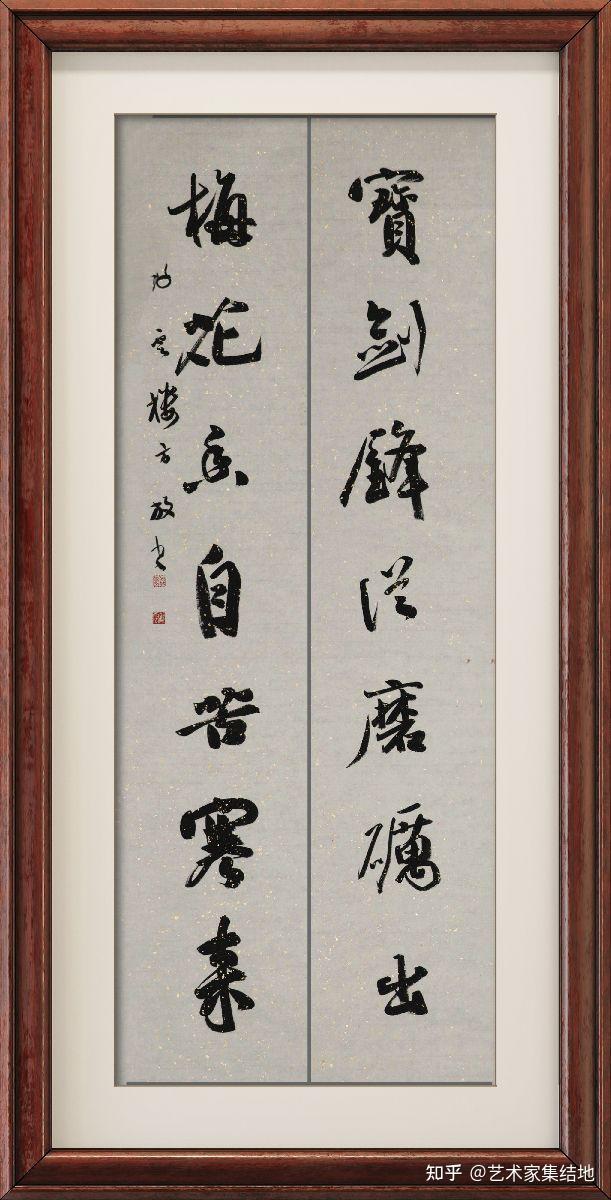 寶劍鋒從磨礪出
梅花香自苦寒來
樓方敬书
知乎 @艺术家集结地